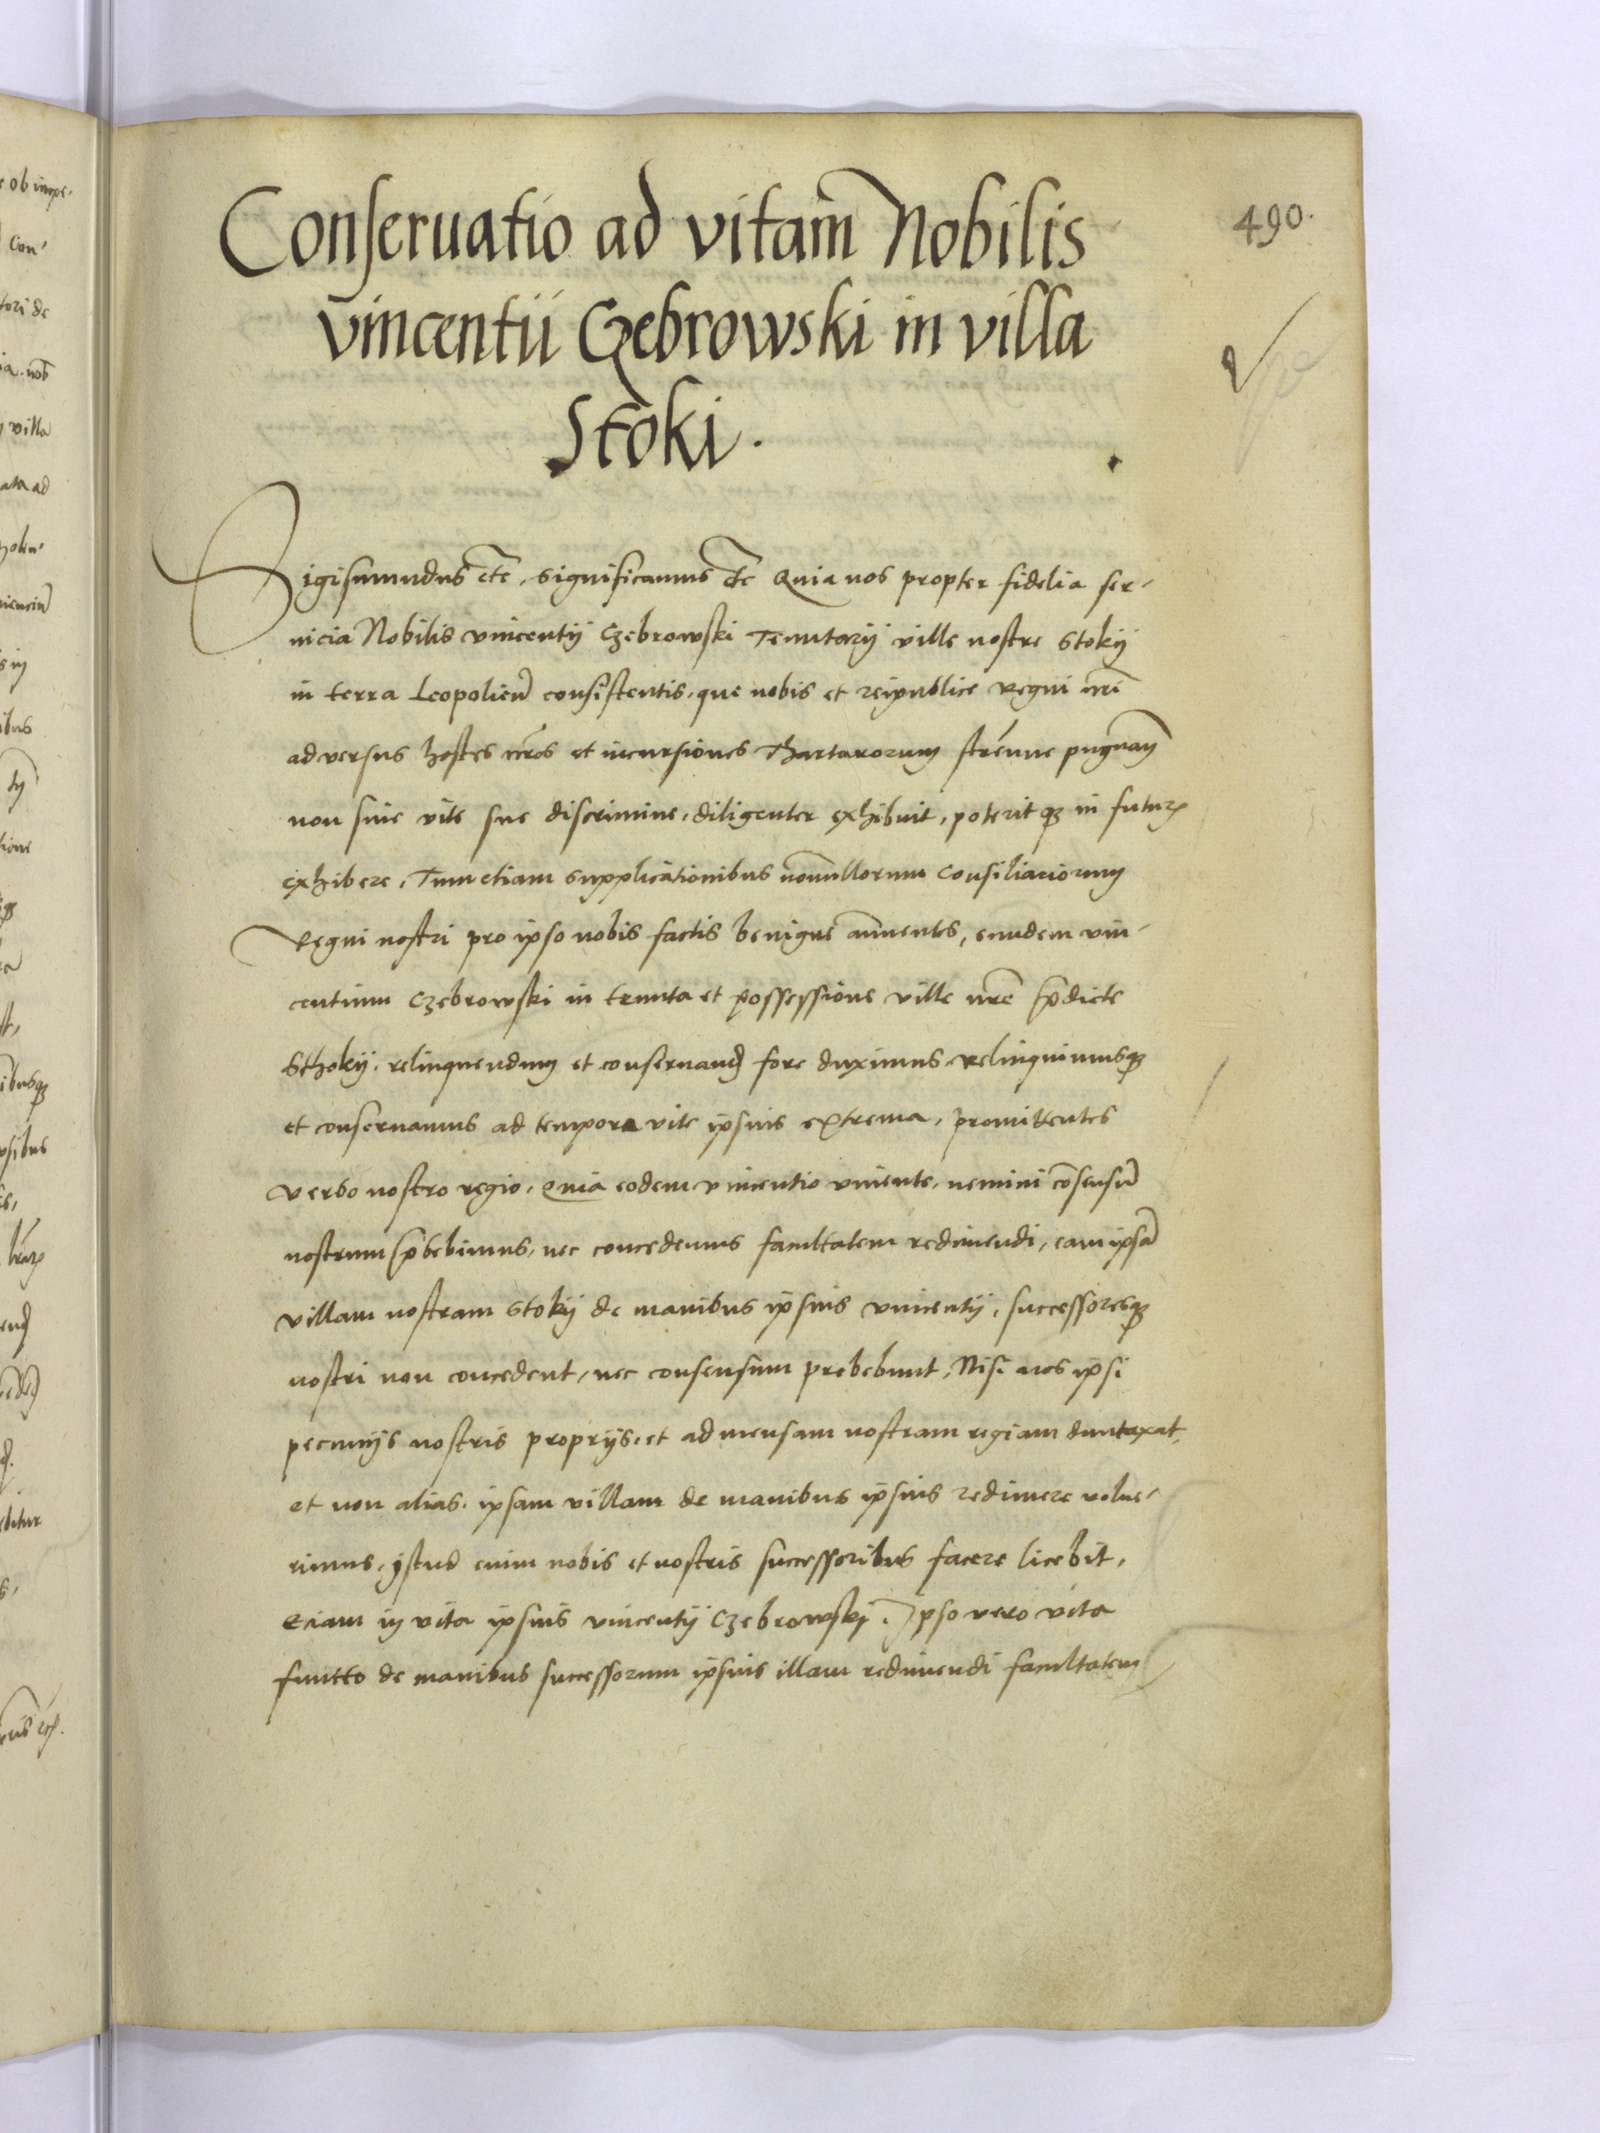 490.
Conseruatio ad vitam Nobilis
vincentii Czebrowski in villa
Stoki.
Sigismundus etc. significamus etc Quia nos propter fidelia ser-
uicia Nobilis vincentij Czebrowski Tenutarij ville nostre Stokij
in terra Leopolien consistentis, que nobis et reipublice regni nri
adversus hostes nros et incursiones Thartarorum strenue pugnan
non sine vite sue discrimine, diligenter exhibuit, poteritq in futur
exhibere, Tum etiam supplicationibus nonnullorum Consiliariorum
Regni nostri pro ipso nobis factis benigne annuentes, eundem vin-
centium Czebrowski in tenuta et possessione ville nre pdicte
Sthokij. relinquendum et conseruand fore duximus relinquimusq
et conseruamus ad tempora vite ipsius extrema, promittentes
verbo nostro regio, Quia eodem vincentio viuente, nemini consensu
nostrum pbebimus, nec concedemus facultatem redimendi, eam ipsa
villam nostram Stokij de manibus ipsius vincentij, successoresq
nostri non concedent, nec consensum prebebunt, Nisi nos ipsi
pecunijs nostris proprijs, et ad mensam nostram regiam duntaxat,
et non alias, ipsam villam de manibus ipsius redimere volue-
rimus, istud enim nobis et nostris successoribus facere licebit,
Eciam in vita ipsius vincentij Czebrowski. Ipso vero vita
functo de manibus successorum ipsius illam redimendi facultatem